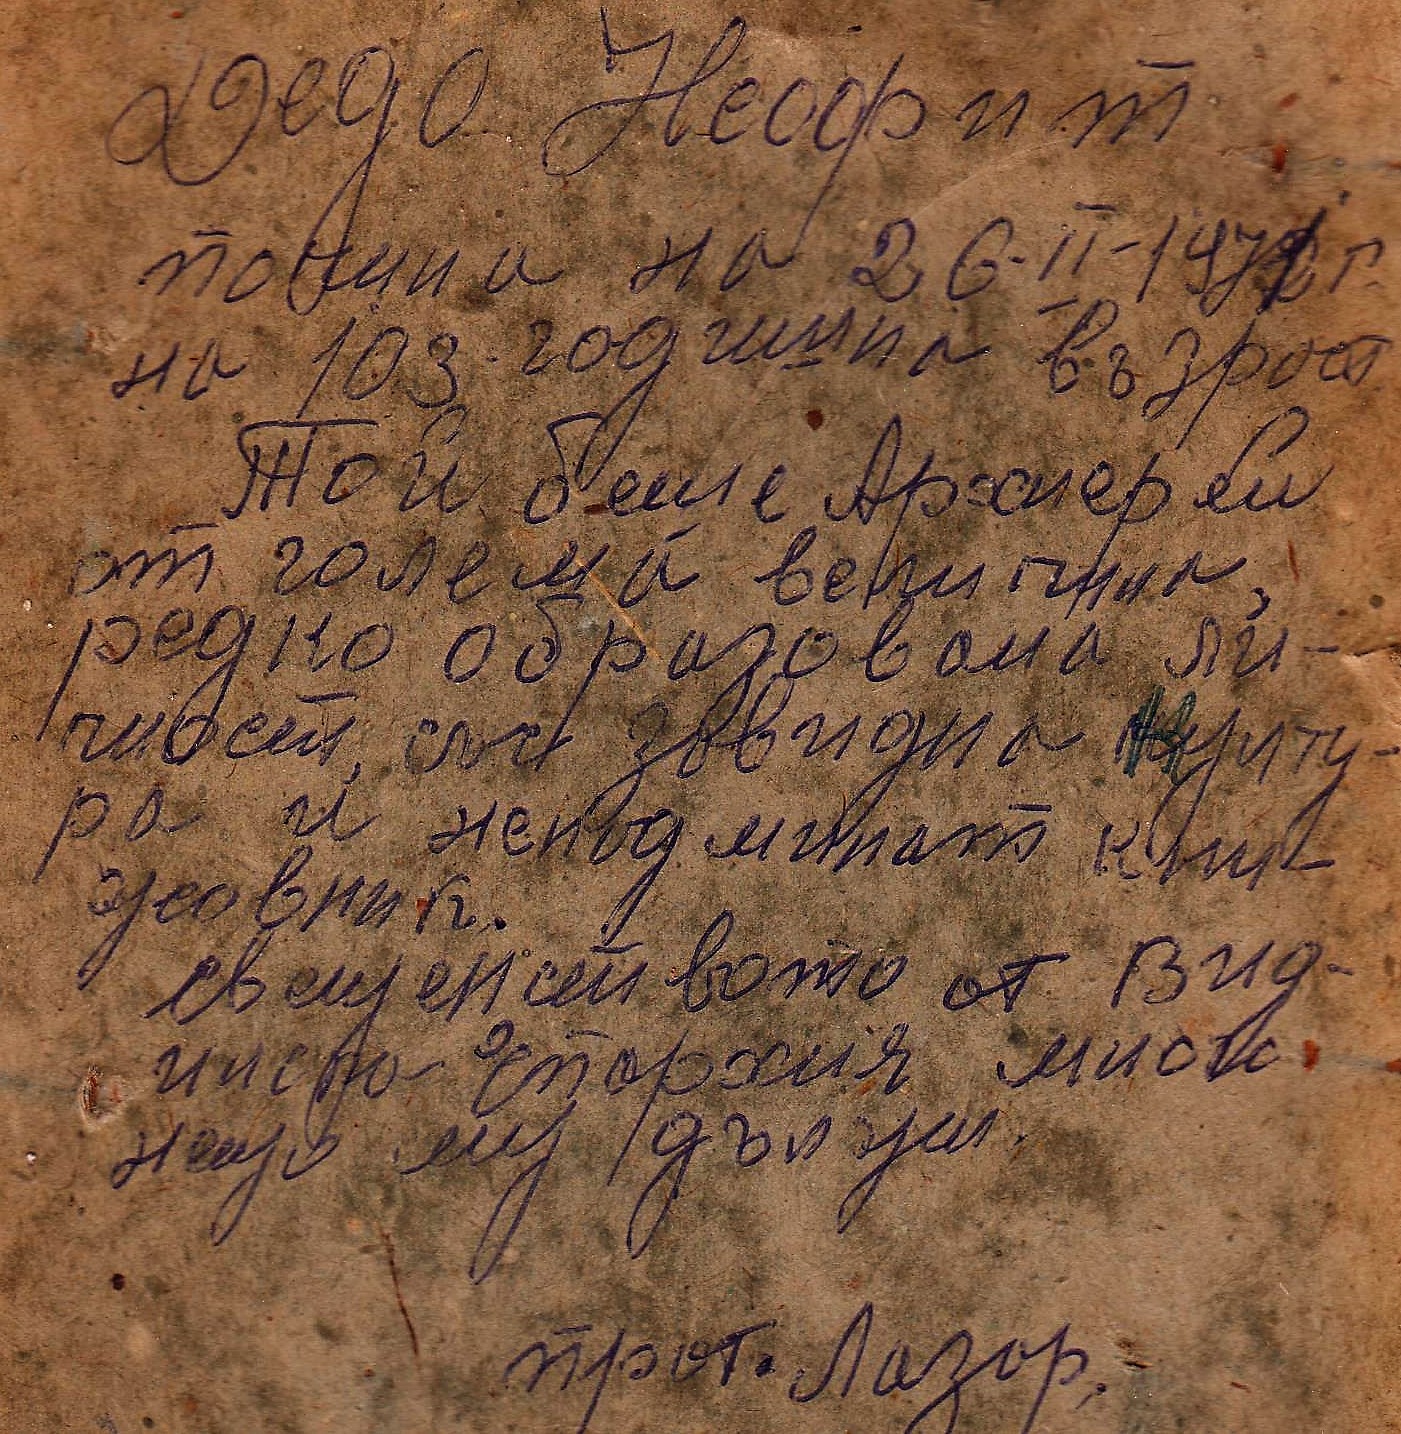 Дедо Неофит
почина на 26-II-1971 г.
на 103-годишна възраст
Той беше Архиерей
от голема величина,
редко образована ли-
чност, със завидна култу-
ра и ненадминат кни-
жовник.
Свещенството от Вид-
инска Епархия много
нещо му дължи.
прот. Лазар.